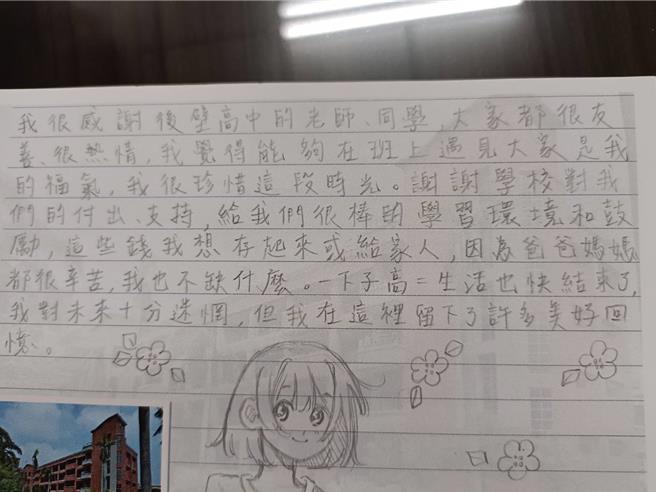 我很感謝後壁高中的老師、同學,大家都很友
善、很熱情,我覺得能夠在班上遇見大家是我
的福氣,我很珍惜這段時光。謝謝學校對我
們的付出、支持,給我們很棒的學習環境和鼓
勵,這些錢我想存起來或給家人,因為爸爸媽媽
都很辛苦,我也不缺什麼。一下子高二生活也快結束了,
我對未來十分迷惘,但我在這裡留下了許多美好回
憶。